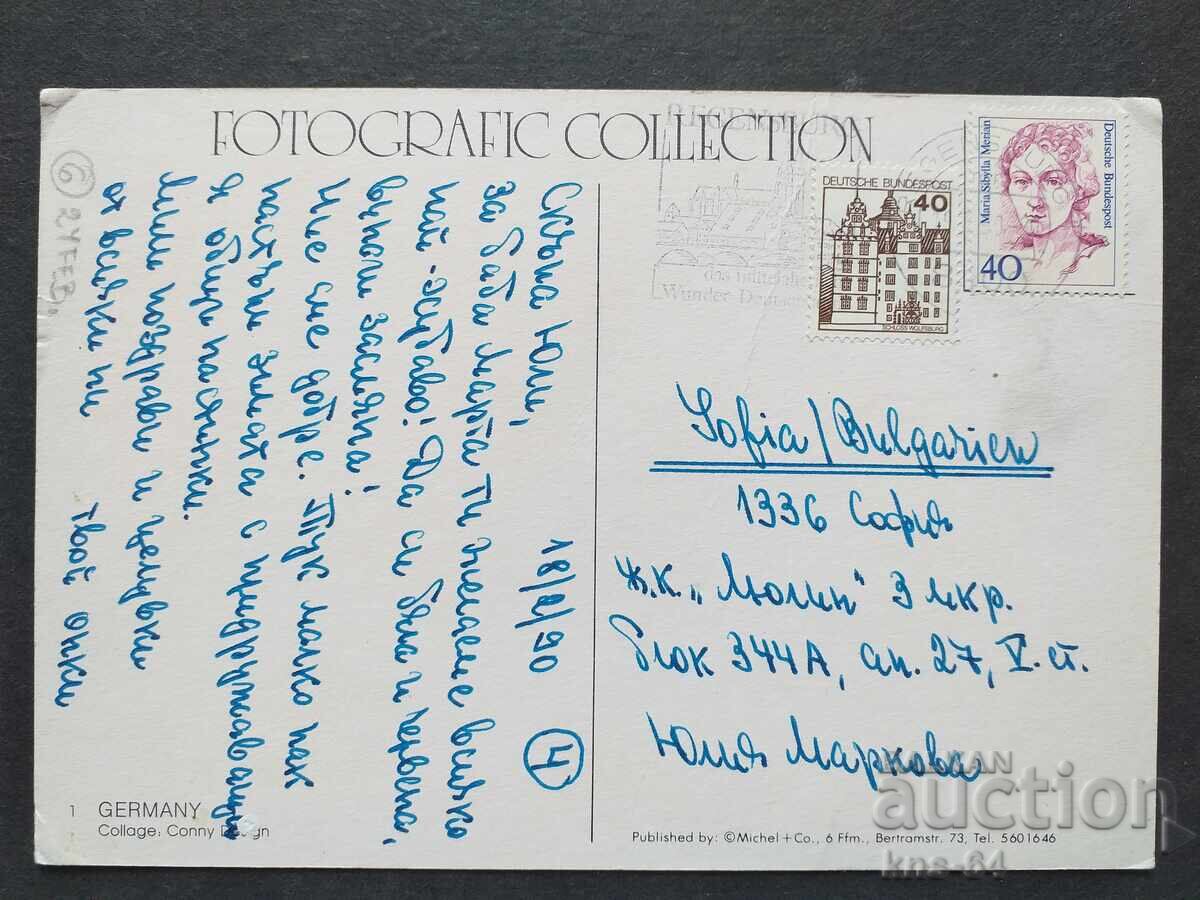 FOTOGRAFIC COLLECTION
6
24 FEB.
18/2/90
4
Скъпа Юли,
за баба Марта ти желаем всичко
най-хубаво! Да си бяла и червена,
весела засмяна!
Ние сме добре. Тук малко пак
настъпи зимата с придружаващи
я вируси настинки.
Много поздрави и целувки
от всички ни
твой
REGENSBURG
das mittelalt
Wunder Deutsc
DEUTSCHE BUNDESPOST
40
SCHLOSS WOLFSBURG
Maria Sibylla Merian
Deutsche Bundespost
40
Sofia/Bulgarien
1336 София
ж.к. „Люлин" 3 мкр.
блок 344А, ап. 27, V. ет.
Юлия Маркова
1 GERMANY
Collage: Conny Design
Published by: ©Michel+Co., 6 Ffm., Bertramstr. 73, Tel. 5601646
BALKAN
auction
kns-64